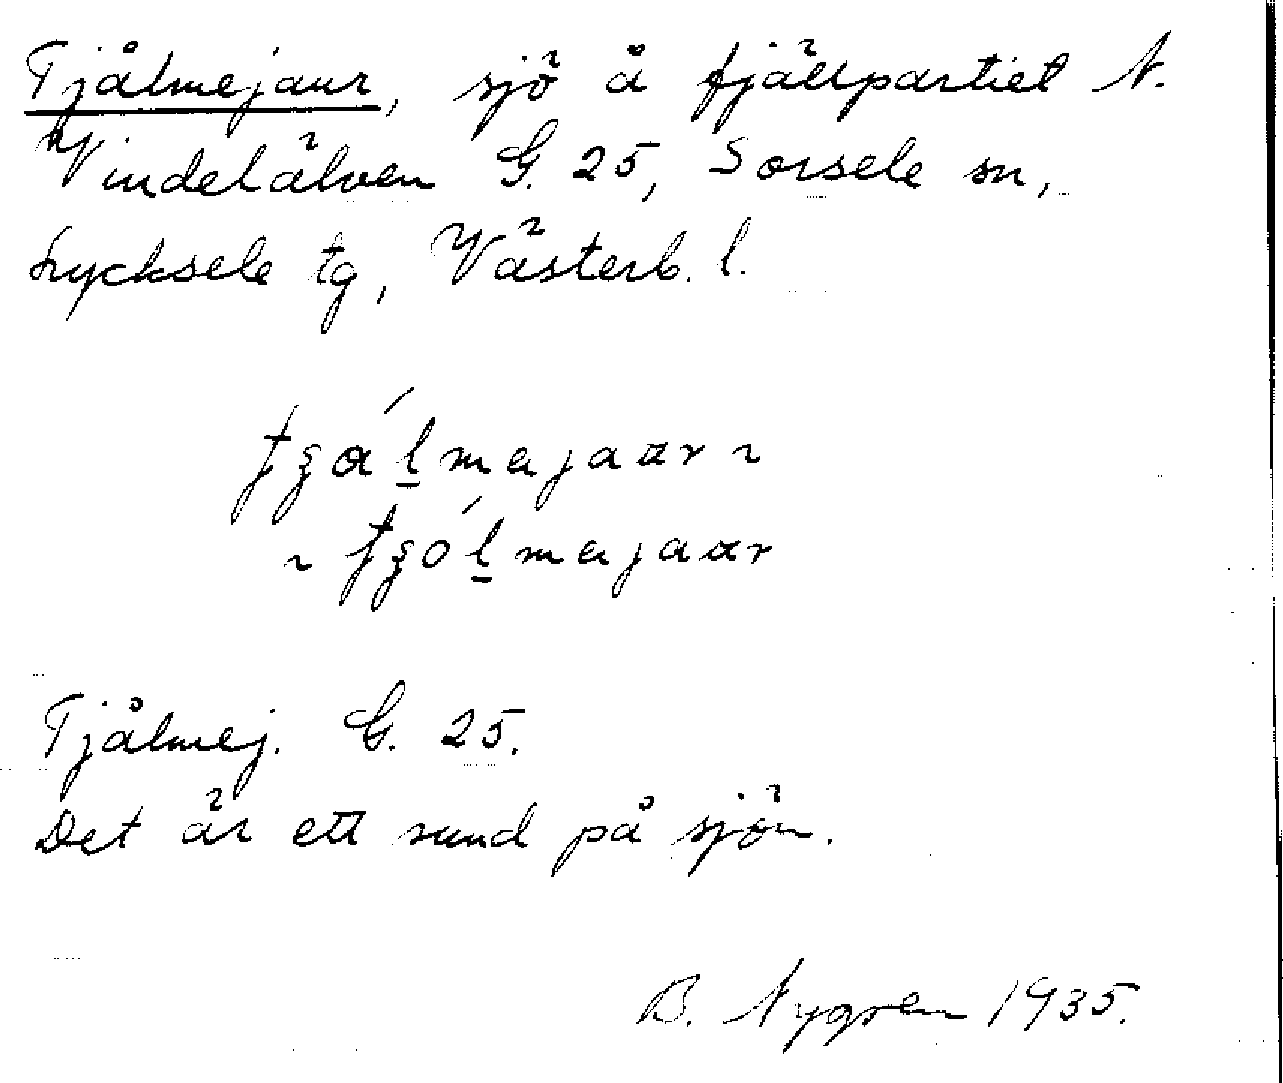 Tjålmejaur, sjö å fjällpartiet N.
Vindelälven G. 25, Sorsele sn,
Lycksele tg, Västerb. l.
Tjålmej. G. 25.
Det är ett sund på sjön.
B. Nygren 1935.